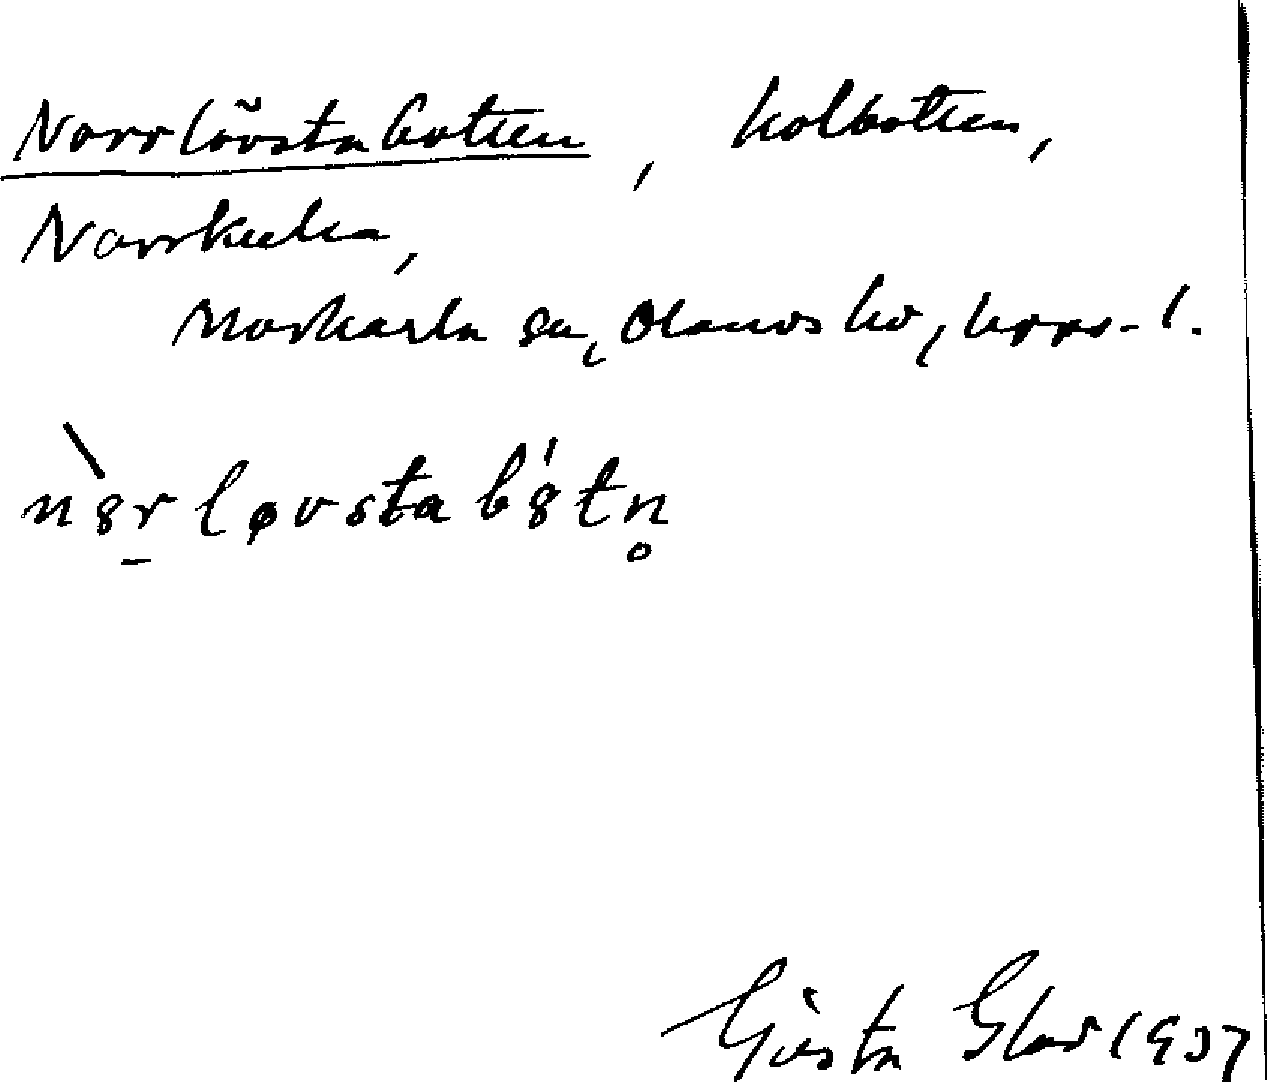 Norrlövstabotten, kolbotten,
Norrskedika,
Morkarla sn, Olands hd, Upps. l.
n8rløvstab8tn
Gösta Glad 1937